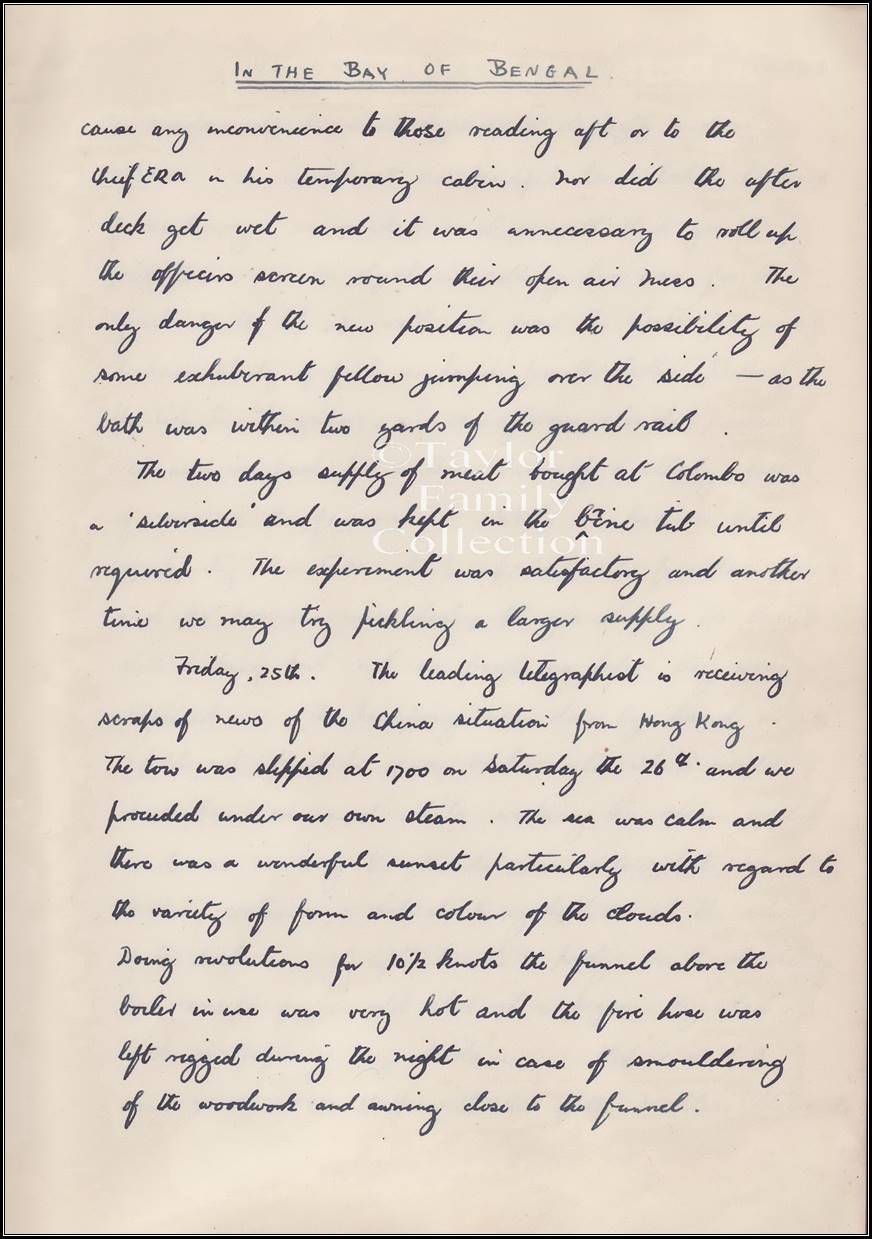 IN THE BAY OF BENGAL.
cause any inconvenience to those reading aft or to the
Chief ERA in his temporary cabin. Nor did the after
deck get wet and it was unnecessary to roll up
the officers screen round their open air mess. The
only danger of the new position was the possibility of
some exhuberant fellow jumping over the side – as the
bath was within two yards of the guard rail.
The two days supply of meat bought at Colombo was
a 'silverside' and was kept in the brine tub until
required. The experiment was satisfactory and another
time we may try pickling a larger supply.
Friday, 25th. The leading telegraphist is receiving
scraps of news of the China situation from Hong Kong.
The tow was slipped at 1700 on Saturday the 26th. and we
proceeded under our own steam. The sea was calm and
there was a wonderful sunset particularly with regard to
the variety of form and colour of the clouds.
Doing revolutions for 10½ knots the funnel above the
boiler in use was very hot and the fire hose was
left rigged during the night in case of smouldering
of the woodwork and awning close to the funnel.
©Taylor
Family
Collection